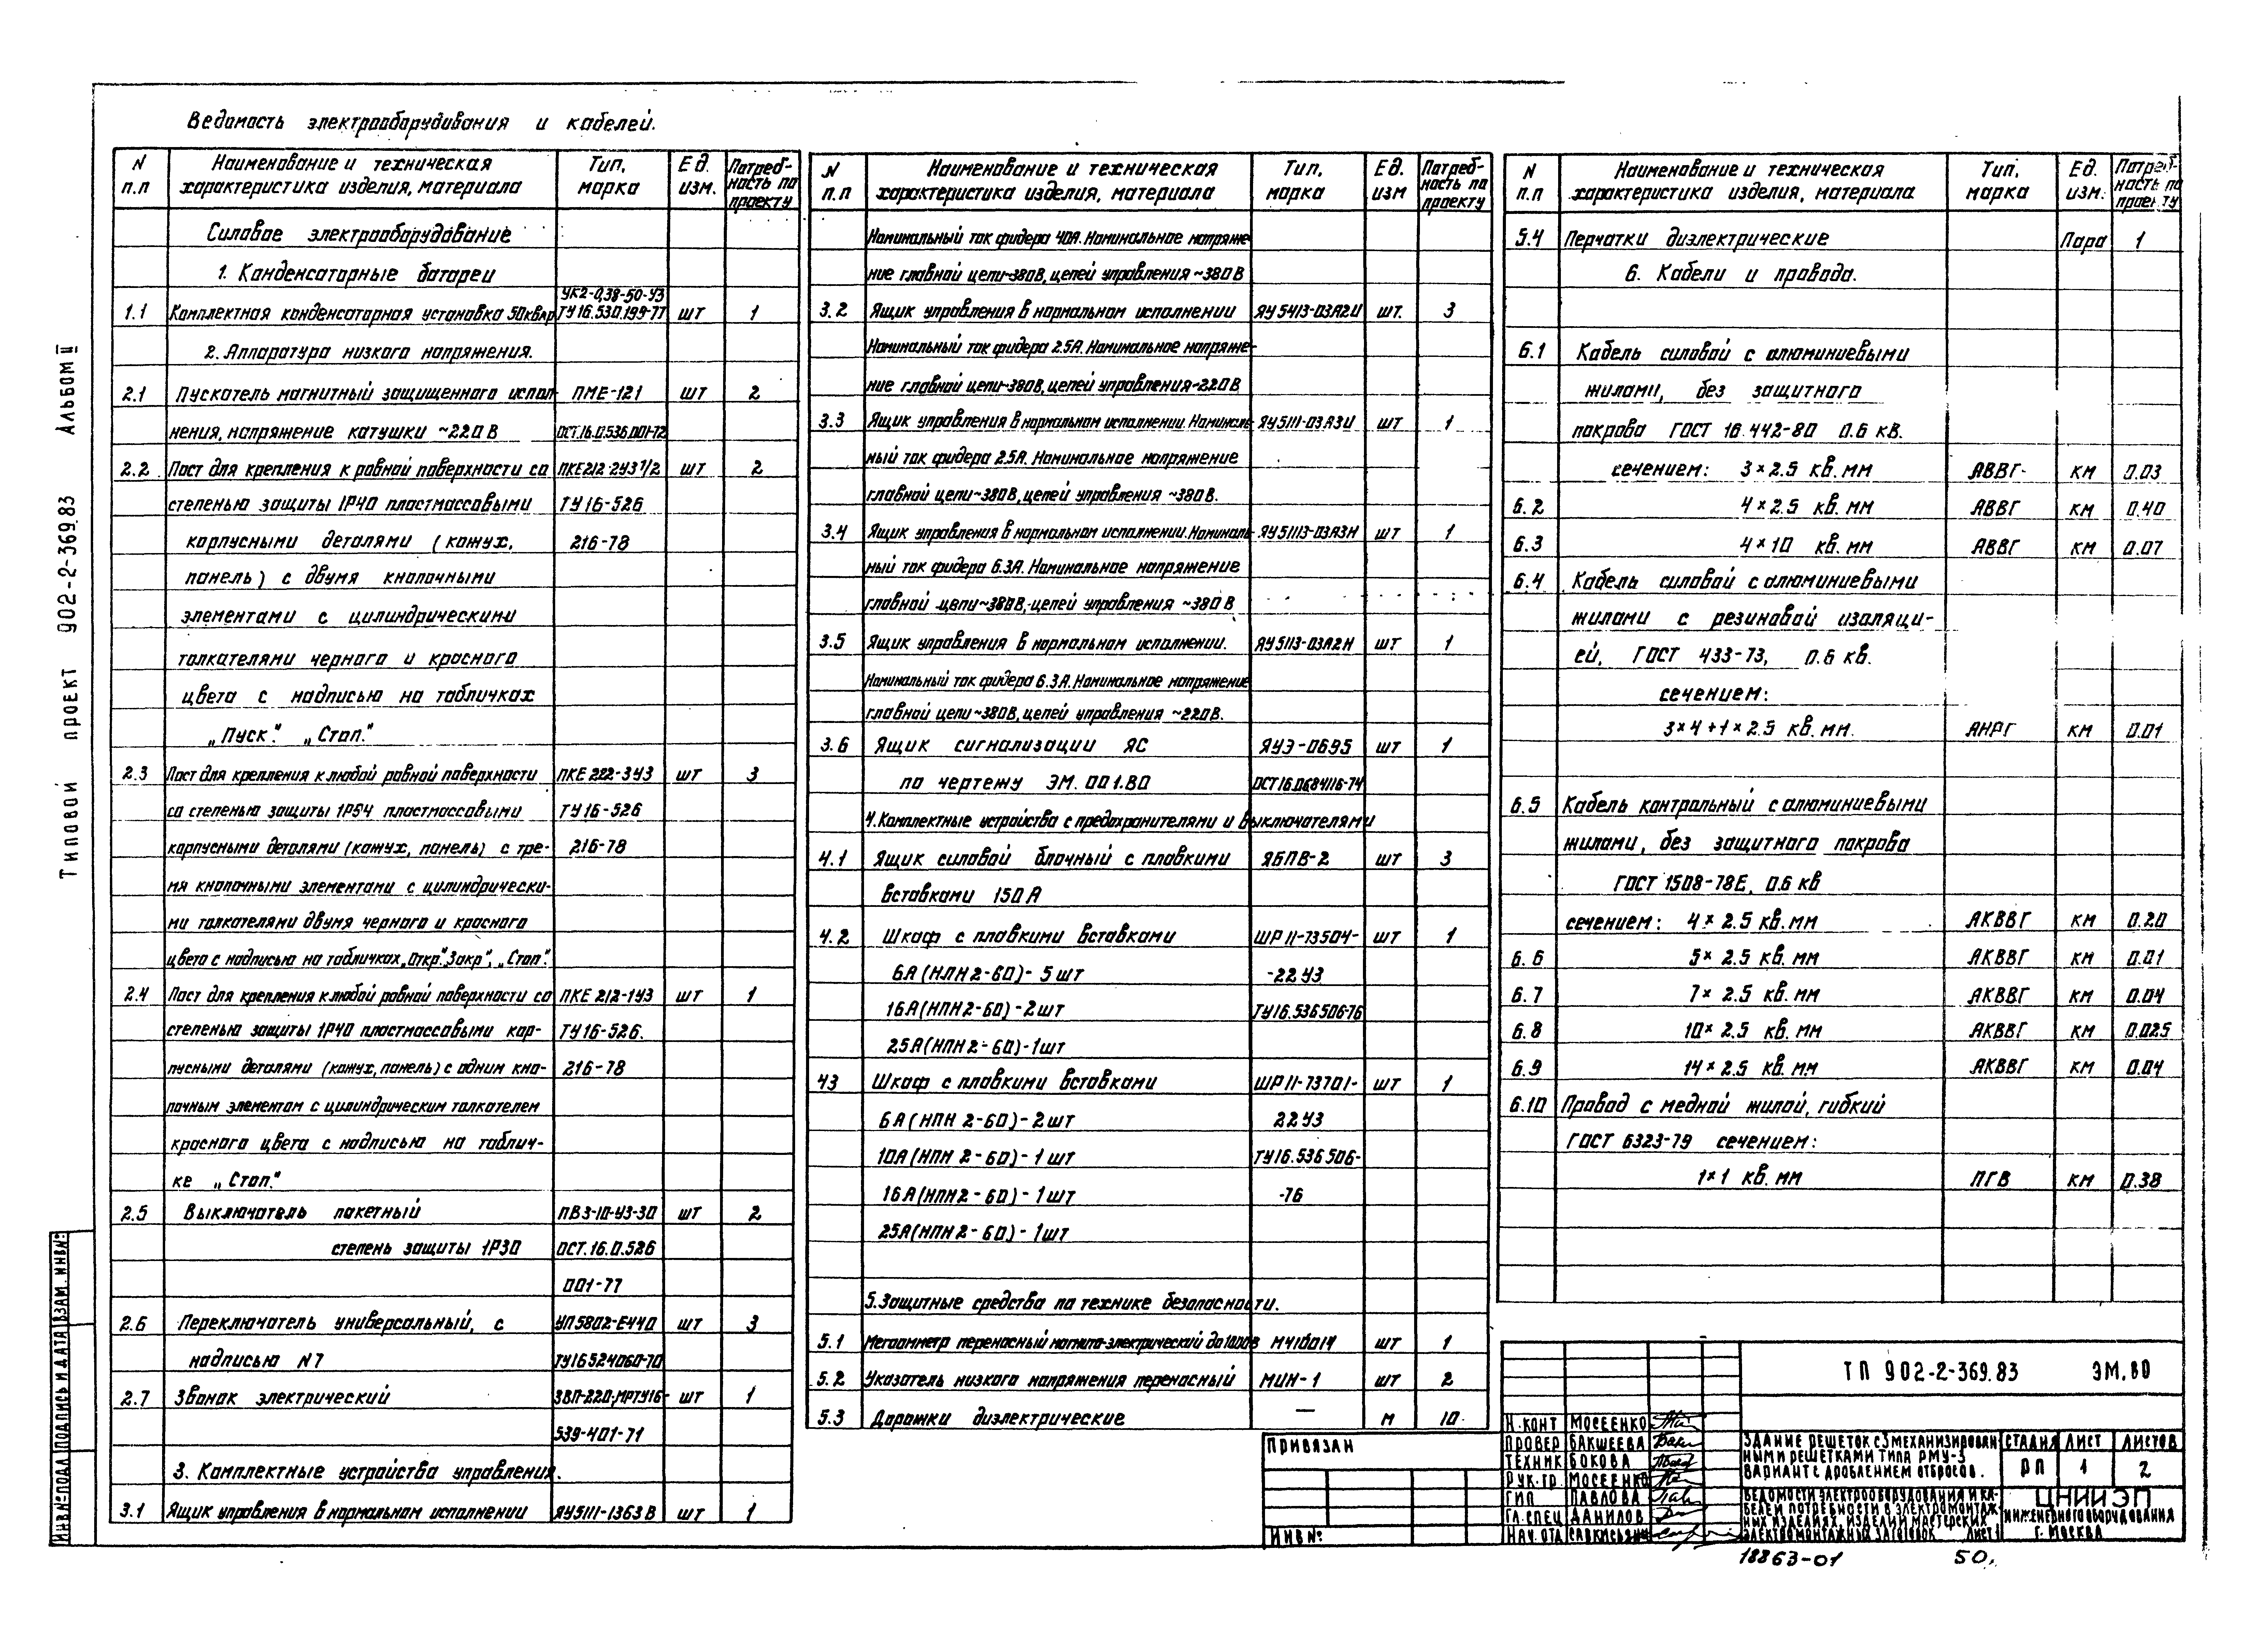 Ведомость электрооборудования и кабелей.
N п.п | Наименование и техническая характеристика изделия, материала | Тип, марка | Ед. изм. | Потреб-ность по проекту
Силовое электрооборудование
1. Конденсаторные батареи
УК2-0,38-50-У3
1.1 Комплектная конденсаторная установка 50квар ТУ16.530.199-77 шт 1
2. Аппаратура низкого напряжения.
2.1 Пускатель магнитный защищенного испол- ПМЕ-121 шт 2
нения, напряжение катушки ~220В ОСТ.16.0.536.001-72
2.2 Пост для крепления к ровной поверхности со ПКЕ212-2У3 1/2 шт 2
степенью защиты IP40 пластмассовыми ТУ16-526
корпусными деталями (кожух, 216-78
панель) с двумя кнопочными
элементами с цилиндрическими
толкателями черного и красного
цвета с надписью на табличках
„Пуск". „Стоп."
2.3 Пост для крепления к любой ровной поверхности ПКЕ 222-3У3 шт 3
со степенью защиты IP54 пластмассовыми ТУ16-526
карпусными деталями (кожух, панель) с тре- 216-78
мя кнопочными элементами с цилиндрически-
ми толкателями двумя черного и красного
цвета с надписью на табличках „Откр." „Закр", „Стоп".
2.4 Пост для крепления к любой ровной поверхности со ПКЕ 212-1У3 шт 1
степенью защиты IP40 пластмассовыми кор- ТУ16-526.
пусными деталями (кожух, панель) с одним кно- 216-78
почным элементом с цилиндрическим толкателем
красного цвета с надписью на таблич-
ке „Стоп."
2.5 Выключатель пакетный ПВ3-10-У3-30 шт 2
степень защиты IP30 ОСТ.16.0.526
001-77
2.6 Переключатель универсальный, с УП5802-Е440 шт 3
надписью N7 ТУ16524060-70
2.7 Звонок электрический ЗВП-220; МРТУ16- шт 1
539-401-71
3. Комплектные устройства управления.
3.1 Ящик управления в нормальном исполнении ЯУ5111-1363В шт 1
N п.п | Наименование и техническая характеристика изделия, материала | Тип, марка | Ед. изм | Потреб-ность по проекту
Номинальный ток фидера 40А. Номинальное напряже-
ние главной цепи~380В, цепей управления ~380В
3.2 Ящик управления в нормальном исполнении ЯУ5413-03А2И шт. 3
Номинальный ток фидера 2.5А. Номинальное напряже-
ние главной цепи~380В, цепей управления~220В
3.3 Ящик управления в нормальном исполнении. Номиналь- ЯУ5111-03А3И шт 1
ный ток фидера 2.5А. Номинальное напряжение
главной цепи~380В, цепей управления ~380В.
3.4 Ящик управления в нормальном исполнении. Номиналь- ЯУ51113-03А3Н шт 1
ный ток фидера 6.3А. Номинальное напряжение
главной цепи~380В, цепей управления ~380В
3.5 Ящик управления в нормальном исполнении. ЯУ5113-03А2Н шт 1
Номинальный ток фидера 6.3А. Номинальное напряжение
главной цепи~380В, цепей управления ~220В.
3.6 Ящик сигнализации ЯС ЯУЭ-0695 шт 1
по чертежу ЭМ.001.ВО ОСТ16.0684116-74
4. Комплектные устройства с предохранителями и выключателями
4.1 Ящик силовой блочный с плавкими ЯБПВ-2 шт 3
вставками 150А
4.2 Шкаф с плавкими вставками ШР11-73504- шт 1
6А(НПН2-60)-5шт -22У3
16А(НПН2-60)-2шт ТУ16.536506-76
25А(НПН2-60)-1шт
43 Шкаф с плавкими вставками ШР11-73701- шт 1
6А(НПН 2-60)-2шт 22У3
10А(НПН 2-60)-1шт ТУ16.536506-
16А(НПН2-60)-1шт -76
25А(НПН2-60)-1шт
5. Защитные средства по технике безопасности.
5.1 Мегаомметр переносный магнито-электрический до 1000В М410014 шт 1
5.2 Указатель низкого напряжения переносный МИН-1 шт 2
5.3 Дорожки диэлектрические — м 10
N п.п | Наименование и техническая характеристика изделия, материала | Тип, марка | Ед. изм. | Потреб-ность по проекту
5.4 Перчатки диэлектрические Пара 1
6. Кабели и провода.
6.1 Кабель силовой с алюминиевыми
жилами, без защитного
покрова ГОСТ 16.442-80 0.6 кв.
сечением: 3×2.5 кв.мм АВВГ- км 0.03
6.2 4×2.5 кв.мм АВВГ км 0.40
6.3 4×10 кв.мм АВВГ км 0.07
6.4 Кабель силовой с алюминиевыми
жилами с резиновой изоляци-
ей, ГОСТ 433-73, 0.6 кв.
сечением:
3×4+1×2.5 кв.мм. АНРГ км 0.01
6.5 Кабель контрольный с алюминиевыми
жилами, без защитного покрова
ГОСТ 1508-78Е, 0.6 кв
сечением: 4×2.5 кв.мм АКВВГ км 0.20
6.6 5×2.5 кв.мм АКВВГ км 0.01
6.7 7×2.5 кв.мм АКВВГ км 0.04
6.8 10×2.5 кв.мм АКВВГ км 0.025
6.9 14×2.5 кв.мм АКВВГ км 0.04
6.10 Провод с медной жилой, гибкий
ГОСТ 6323-79 сечением:
1×1 кв.мм ПГВ км 0.38
Типовой проект 902-2-369.83 Альбом II
ИНВ№ПОДЛ ПОДПИСЬ И ДАТА ВЗАМ. ИНВ№
ПРИВЯЗАН
ИНВ№:
ТП 902-2-369.83 ЭМ.ВО
Н.КОНТ МОСЕЕНКО
ПРОВЕР БАКШЕЕВА
ТЕХНИК БОКОВА
РУК.ГР. МОСЕЕНКО
ГИП ПАВЛОВА
ГЛ.СПЕЦ ДАНИЛОВ
НАЧ.ОТД
ЗДАНИЕ РЕШЕТОК С 3 МЕХАНИЗИРОВАН-
НЫМИ РЕШЕТКАМИ ТИПА РМУ-3
ВАРИАНТ С ДРОБЛЕНИЕМ ОТБРОСОВ.
СТАДИЯ ЛИСТ ЛИСТОВ
РП 1 2
ВЕДОМОСТИ ЭЛЕКТРООБОРУДОВАНИЯ И КА-
БЕЛЕЙ ПОТРЕБНОСТИ В ЭЛЕКТРОМОНТАЖ-
НЫХ ИЗДЕЛИЯХ, ИЗДЕЛИЙ МАСТЕРСКИХ
ЭЛЕКТРОМОНТАЖНЫХ ЗАГОТОВОК ЛИСТ 1
ЦНИИЭП
ИНЖЕНЕРНОГО ОБОРУДОВАНИЯ
Г. МОСКВА
18863-01 50.